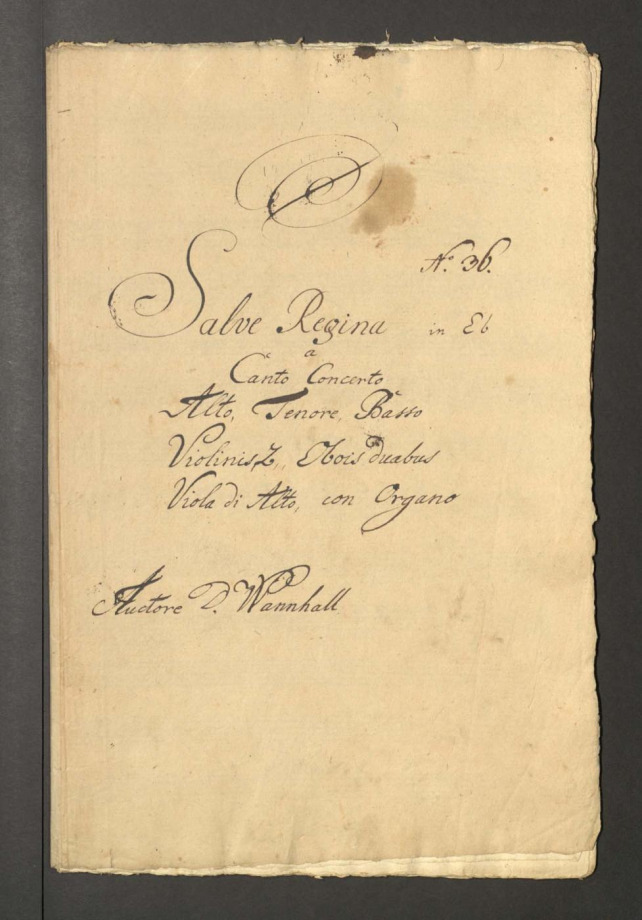 No. 36.
Salve Regina in Eb
a
Canto Concerto
Alto, Tenore, Basso
Violinis 2, Obois duabus
Viola di Alto, con Organo
Auctore D. Wannhall